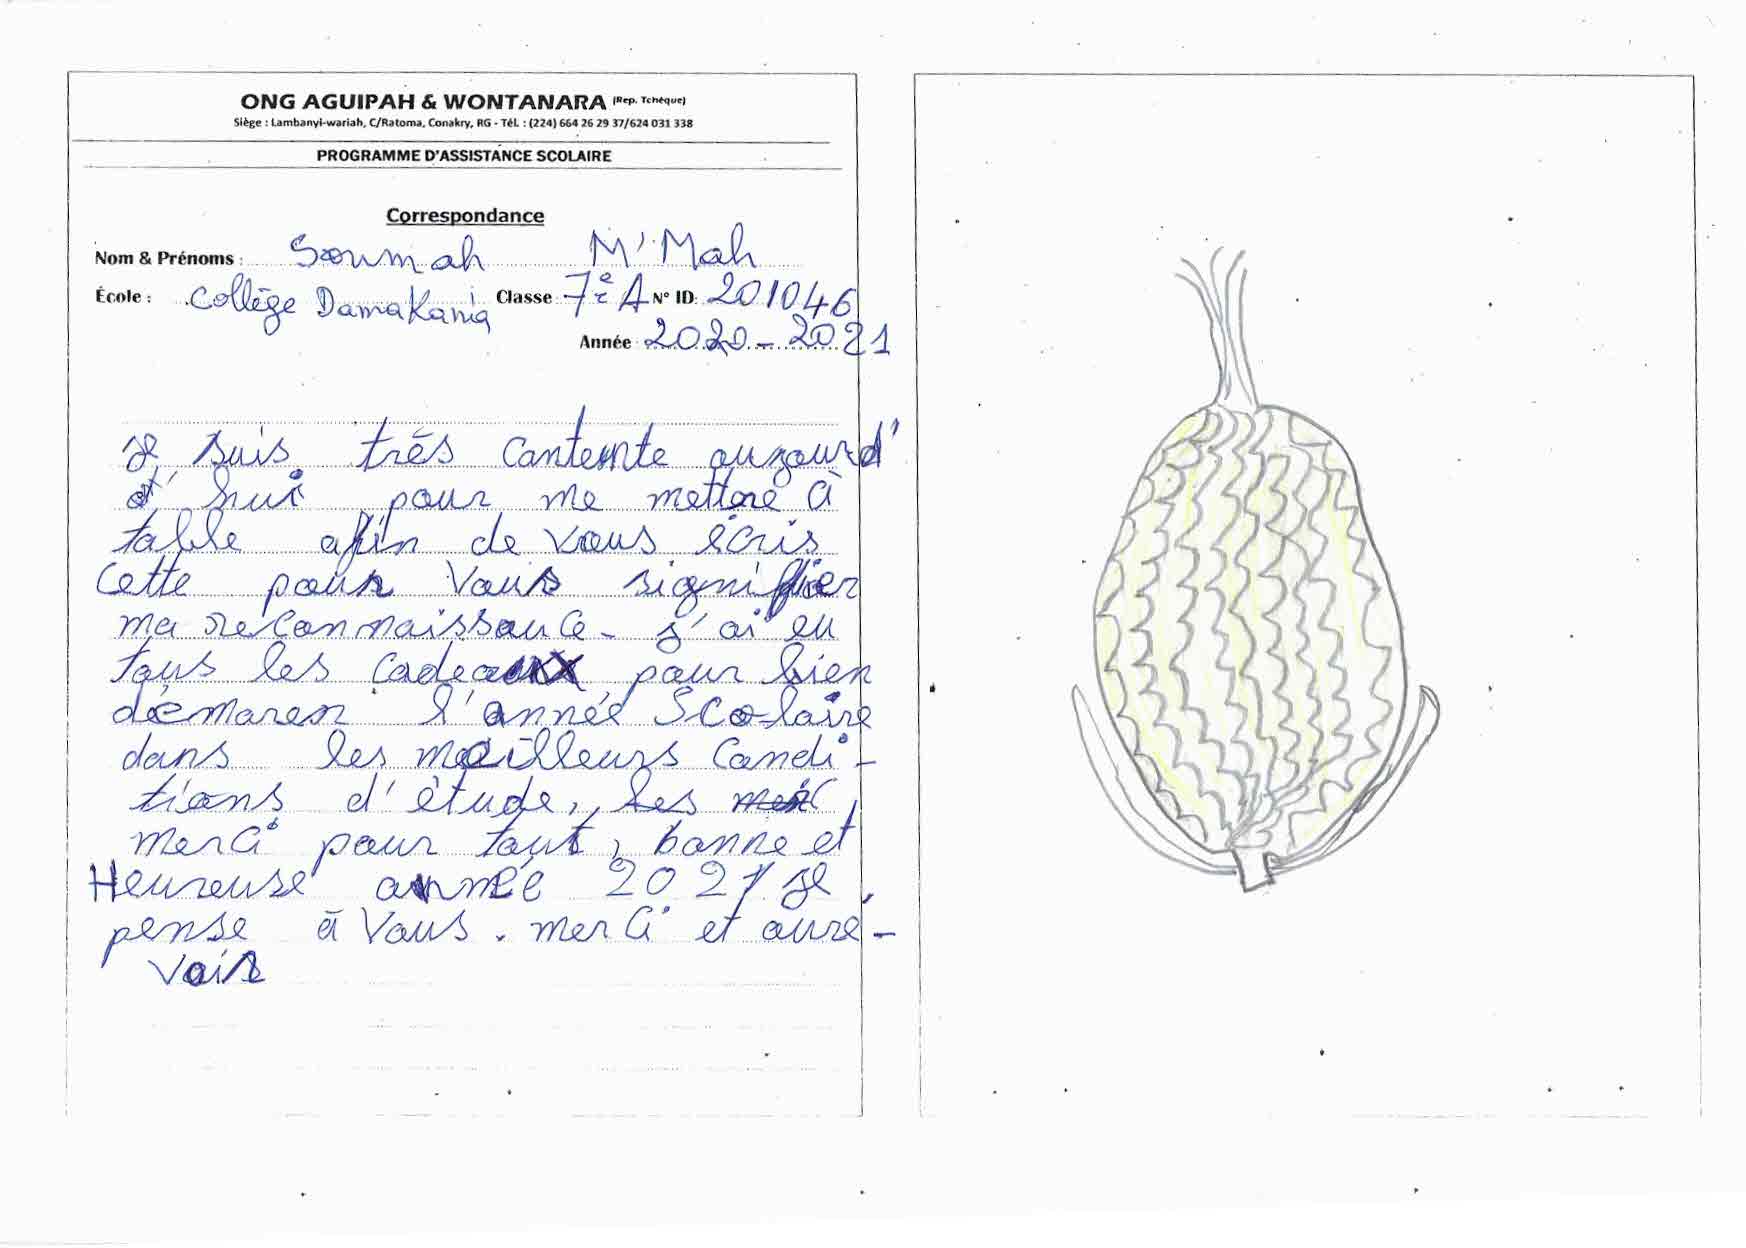 ONG AGUIPAH & WONTANARA (Rep. Tchéque)
Siège : Lambanyi-wariah, C/Ratoma, Conakry, RG - Tél. : (224) 664 26 29 37/624 031 338
PROGRAMME D'ASSISTANCE SCOLAIRE
Correspondance
Nom & Prénoms : Soumah M'Mah
École : Collège Damakania Classe 7è A N° ID: 201046
Année 2020-2021
Je suis très contente aujourd'
hui pour me mettre à
table afin de vous écris
Cette pour vous signifier
ma reconnaissance - j'ai eu
tous les cadeaux pour bien
démarer l'année Scolaire
dans les meilleurs Condi-
tions d'étude, les
merci pour tout, bonne et
Heureuse année 2021 je
pense à vous. merci et auré-
voir